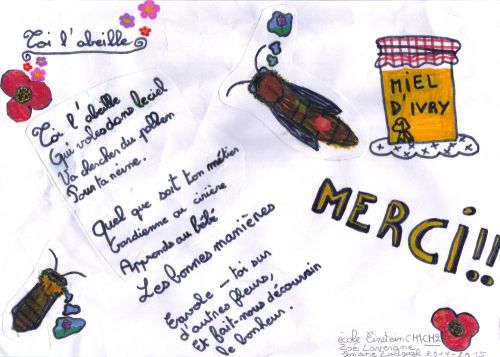 Toi l'abeille
Toi l'abeille
Qui voles dans le ciel
Va chercher du pollen
Pour ta reine.
Quel que soit ton métier
Gardienne ou cirière
Apprends au bébé
Les bonnes manières
Envole-toi sur
d'autres fleurs,
Et fait-nous découvrir
le bonheur.
MIEL
D'IVRY
MERCi!!
école Einstein CM1/CM2
Zoé Lavergne
Imane 2014-2015